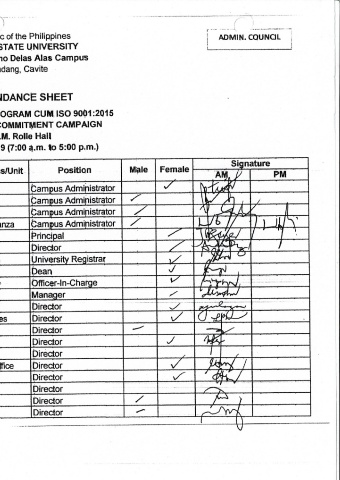 ic of the Philippines
STATE UNIVERSITY
no Delas Alas Campus
ndang, Cavite
ADMIN. COUNCIL
NDANCE SHEET
OGRAM CUM ISO 9001:2015
COMMITMENT CAMPAIGN
.M. Rolle Hall
9 (7:00 a.m. to 5:00 p.m.)
s/Unit Position Male Female Signature
AM PM
Campus Administrator
Campus Administrator
Campus Administrator
anza Campus Administrator
Principal
Director
University Registrar
Dean
Officer-In-Charge
Manager
Director
es Director
Director
Director
Director
ffice Director
Director
Director
Director
Director